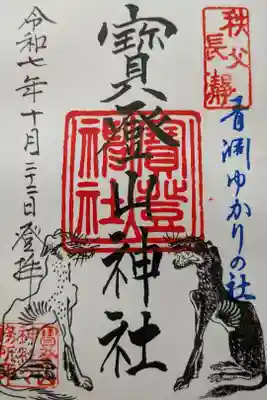 秩父
長瀞
青淵ゆかりの社
寳登山神社
寳登山
神社
令和七年十月二十二日登拝